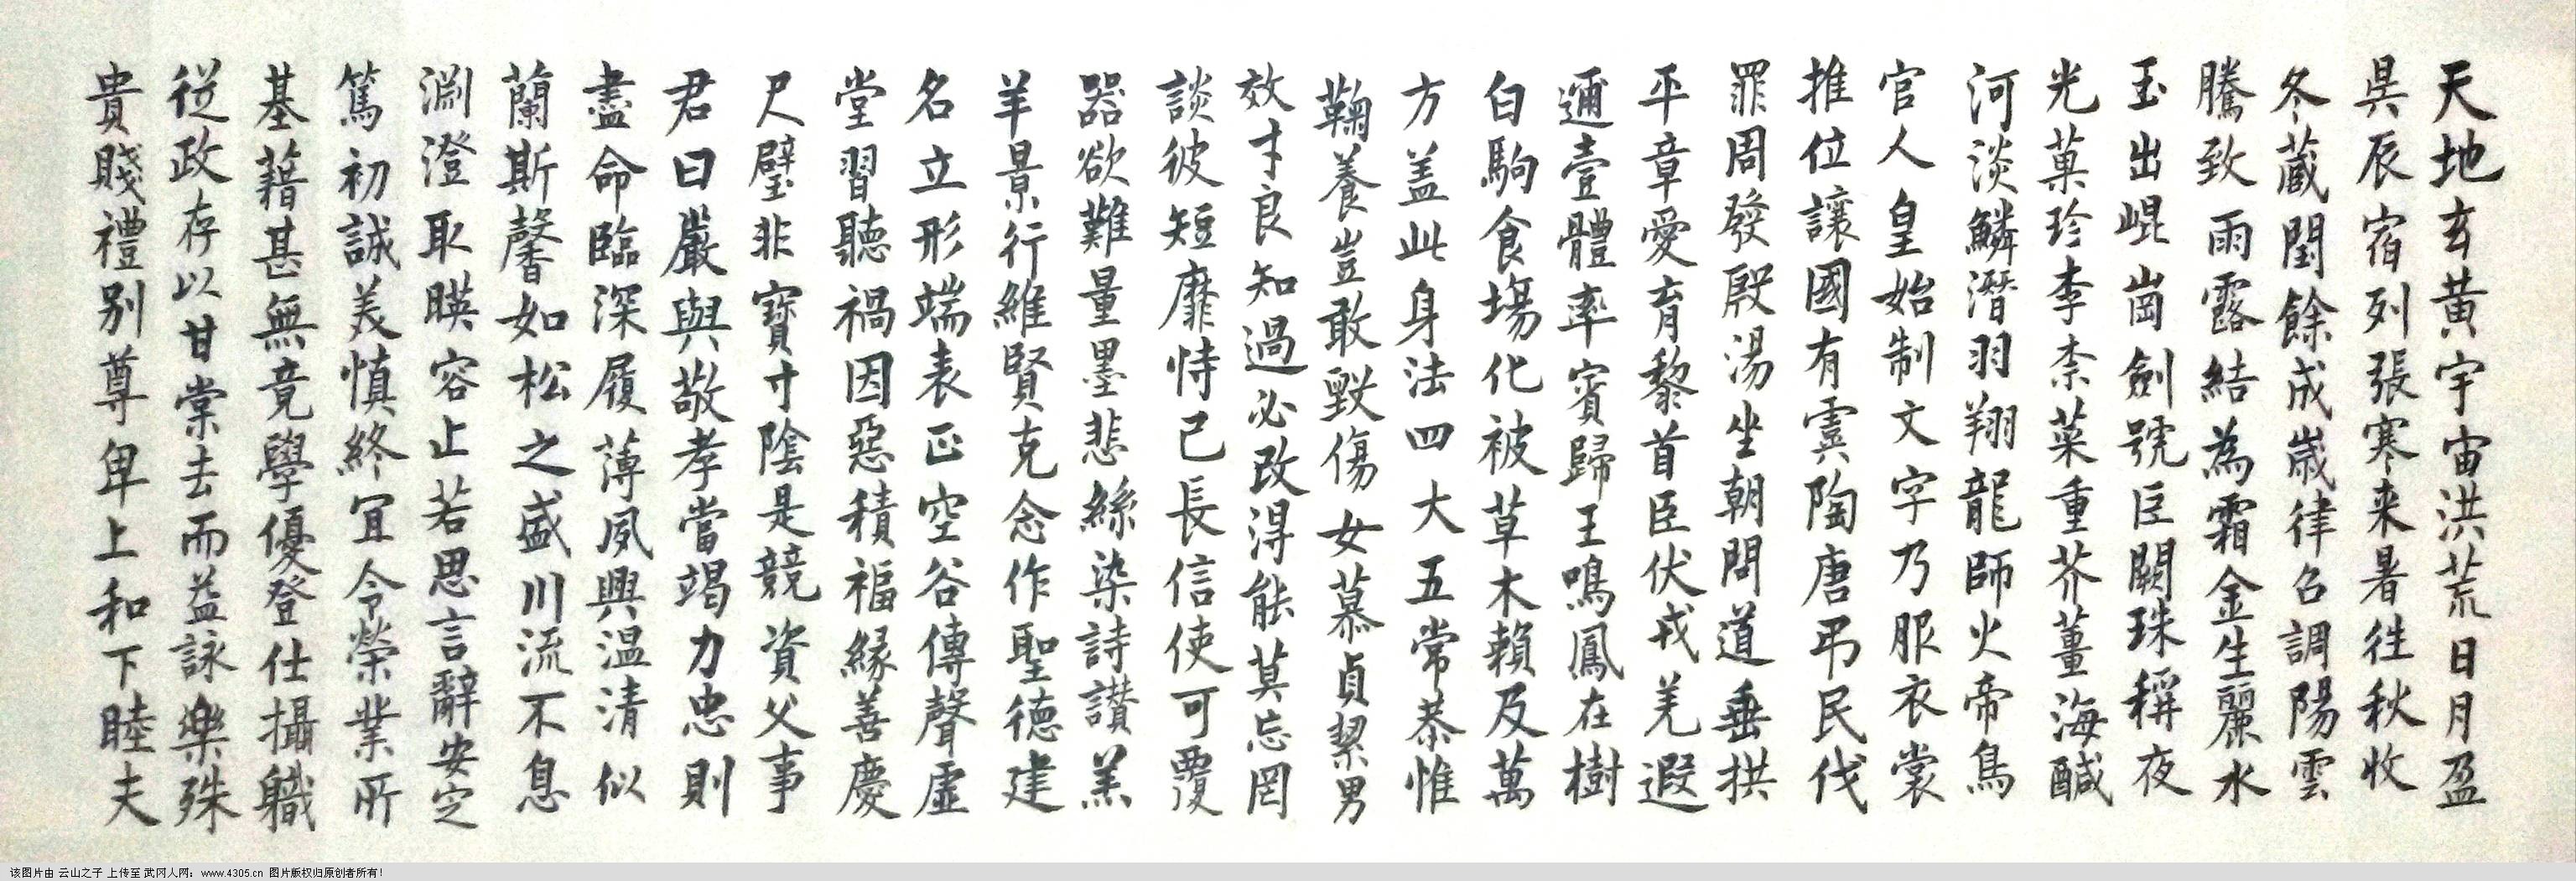 天地玄黃宇宙洪荒日月盈
昃辰宿列張寒来暑往秋收
冬蔵閏餘成歲律召調陽雲
騰致雨露結為霜金生麗水
玉出崐崗劍號巨闕珠稱夜
光菓珍李柰菜重芥薑海醎
河淡鱗潛羽翔龍師火帝鳥
官人皇始制文字乃服衣裳
推位讓國有虞陶唐弔民伐
罪周發殷湯坐朝問道垂拱
平章愛育黎首臣伏戎羌遐
邇壹體率賓歸王鳴鳳在樹
白駒食場化被草木賴及萬
方盖此身法四大五常恭惟
鞠養豈敢毀傷女慕貞絜男
效才良知過必改得能莫忘罔
談彼短靡恃己長信使可覆
器欲難量墨悲絲染詩讃羔
羊景行維賢克念作聖德建
名立形端表正空谷傳聲虛
堂習聽禍因惡積福緣善慶
尺璧非寶寸陰是競資父事
君曰嚴與敬孝當竭力忠則
盡命臨深履薄夙興温清似
蘭斯馨如松之盛川流不息
淵澄取暎容止若思言辭安定
篤初誠美慎終宜令榮業所
基藉甚無竟學優登仕攝職
從政存以甘棠去而益詠樂殊
貴賤禮別尊卑上和下睦夫
该图片由 云山之子 上传至 武冈人网：www.4305.cn 图片版权归原创者所有！